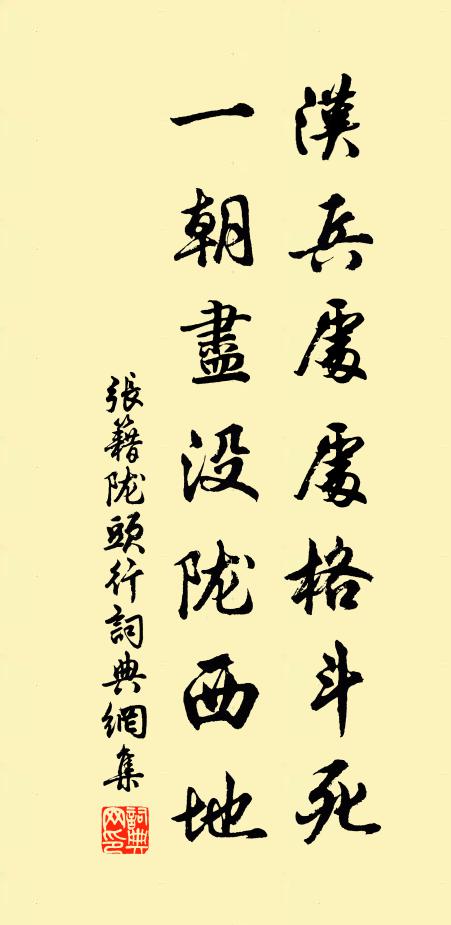 漢兵處處格斗死
一朝盡没陇西地
張籍陇頭行詞典網集
詞典網印